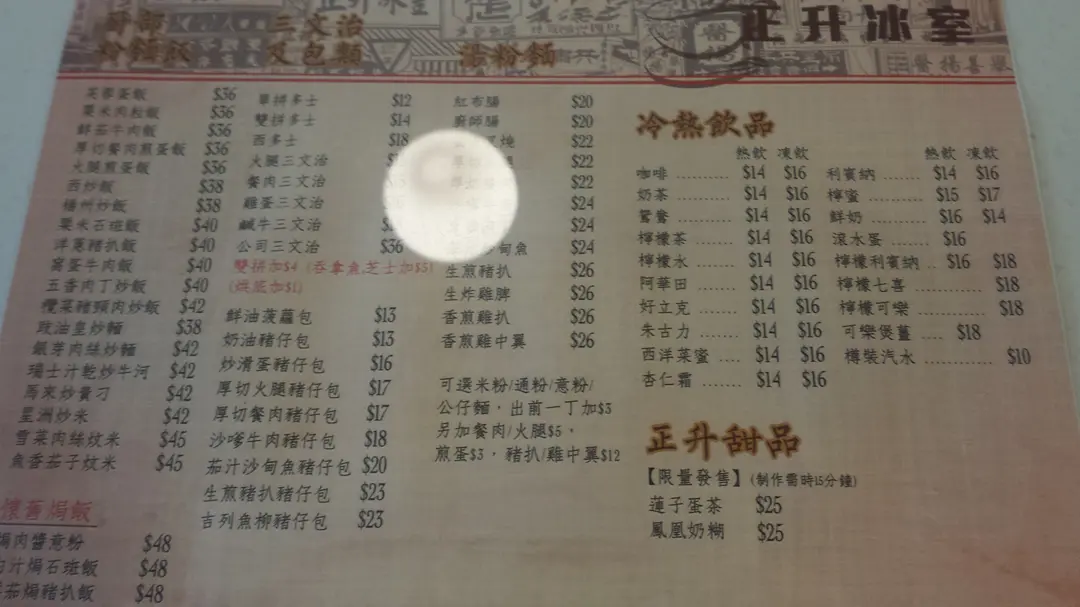 正升冰室
廚部
粉麵飯
三文治
及包類
湯粉麵
芙蓉蛋飯 $36
粟米肉粒飯 $36
鮮茄牛肉飯 $36
厚切餐肉煎蛋飯 $36
火腿煎蛋飯 $36
西炒飯 $38
楊州炒飯 $38
粟米石斑飯 $40
洋蔥豬扒飯 $40
窩蛋牛肉飯 $40
五香肉丁炒飯 $40
欖菜豬頸肉炒飯 $42
豉油皇炒麵 $38
銀芽肉絲炒麵 $42
瑞士汁乾炒牛河 $42
馬來炒貴刁 $42
星洲炒米 $42
雪菜肉絲炆米 $45
魚香茄子炆米 $45
懷舊焗飯
焗肉醬意粉 $48
汁焗石斑飯 $48
茄焗豬扒飯 $48
單拼多士 $12
雙拼多士 $14
西多士 $18
火腿三文治
餐肉三文治
雞蛋三文治
鹹牛三文治
公司三文治 $36
雙拼加$4 (吞拿魚,芝士加$5)
(烘底加$1)
鮮油菠蘿包 $13
奶油豬仔包 $13
炒滑蛋豬仔包 $16
厚切火腿豬仔包 $17
厚切餐肉豬仔包 $17
沙嗲牛肉豬仔包 $18
茄汁沙甸魚豬仔包 $20
生煎豬扒豬仔包 $23
吉列魚柳豬仔包 $23
紅布腸 $20
廚師腸 $20
$22
$22
$22
$24
$24
甸魚 $24
生煎豬扒 $26
生炸雞脾 $26
香煎雞扒 $26
香煎雞中翼 $26
可選米粉/通粉/意粉/
公仔麵，出前一丁加$3
另加餐肉/火腿$5，
煎蛋$3，豬扒/雞中翼$12
冷熱飲品
熱飲 凍飲
咖啡 ......... $14 $16
奶茶 ......... $14 $16
鴛鴦 ......... $14 $16
檸檬茶 ....... $14 $16
檸檬水 ....... $14 $16
阿華田 ....... $14 $16
好立克 ....... $14 $16
朱古力 ....... $14 $16
西洋菜蜜 .... $14 $16
杏仁霜 ....... $14 $16
熱飲 凍飲
利賓納 ....... $14 $16
檸蜜 .......... $15 $17
鮮奶 .......... $16 $14
滾水蛋 ....... $16
檸檬利賓納 .. $16 $18
檸檬七喜 ............. $18
檸檬可樂 ............. $18
可樂煲薑 .... $18
樽裝汽水 ............. $10
正升甜品
【限量發售】(制作需時15分鐘)
蓮子蛋茶 $25
鳳凰奶糊 $25